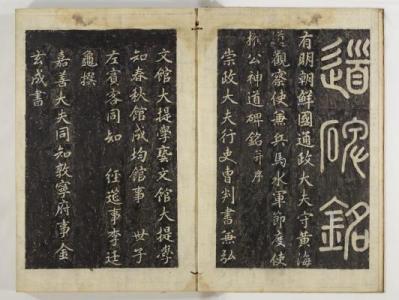 道碑銘
有明朝鮮國通政大夫守黃海
道觀察使兼兵馬水軍節度使
公神道碑銘并序
崇政大夫行吏曹判書兼弘
文館大提學藝文館大提學
知春秋館成均館事 世子
左賓客同知 經筵事李廷
龜撰
嘉善大夫同知敦寧府事金
玄成書